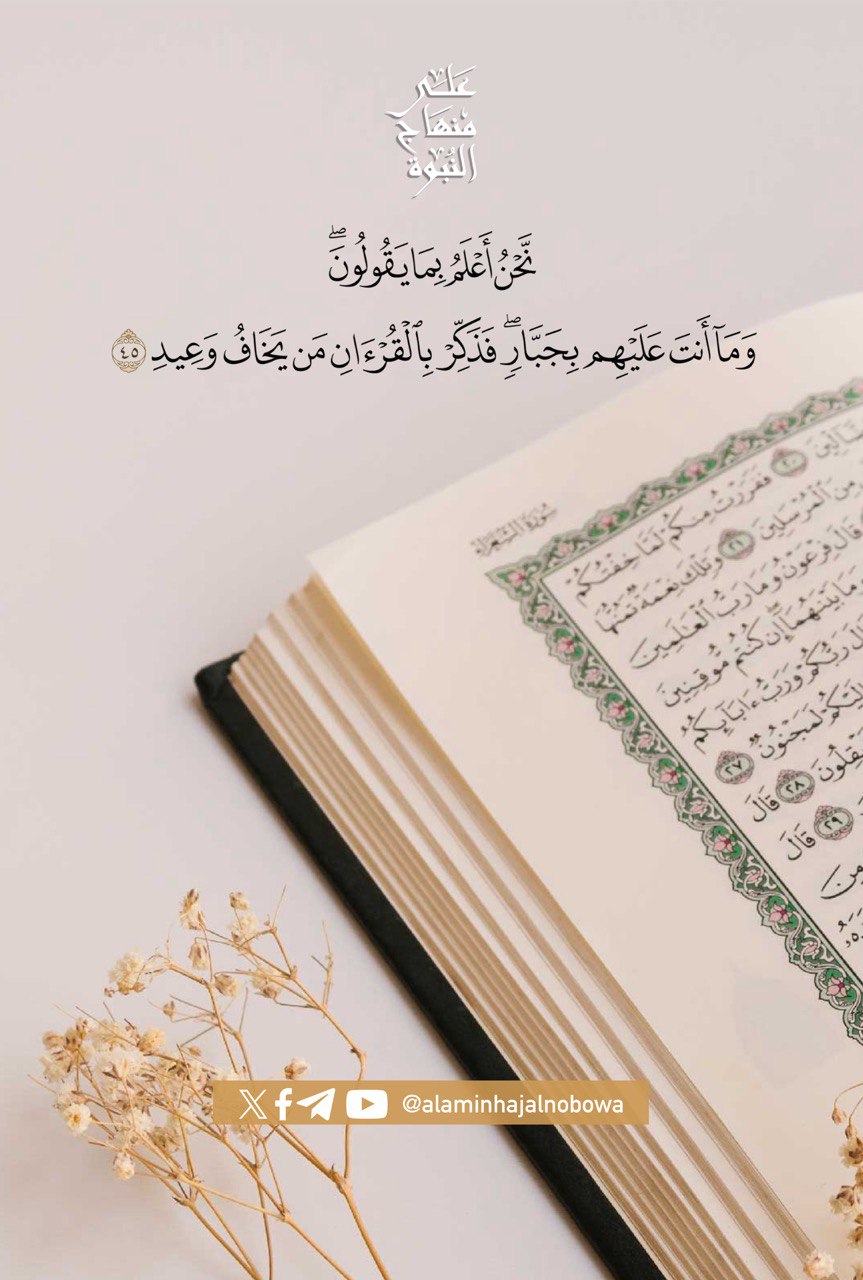 عَلَى
مِنهَاج
النُّبُوَّة
نَّحۡنُ أَعۡلَمُ بِمَا يَقُولُونَۖ
وَمَآ أَنتَ عَلَيۡهِم بِجَبَّارٖۖ فَذَكِّرۡ بِٱلۡقُرۡءَانِ مَن يَخَافُ وَعِيدِ ٤٥
سُورَةُ الشُّعَرَاء
ٱلضَّآلِّينَ ٢٠ فَفَرَرۡتُ مِنكُمۡ لَمَّا خِفۡتُكُمۡ
مِنَ ٱلۡمُرۡسَلِينَ ٢١ وَتِلۡكَ نِعۡمَةٞ تَمُنُّهَا
قَالَ فِرۡعَوۡنُ وَمَا رَبُّ ٱلۡعَٰلَمِينَ
وَمَا بَيۡنَهُمَآۖ إِن كُنتُم مُّوقِنِينَ
رَبُّكُمۡ وَرَبُّ ءَابَآئِكُمُ
لَمَجۡنُونٞ ٢٧
٢٨ قَالَ
٢٩ قَالَ
مِنَ
@alaminhajalnobowa